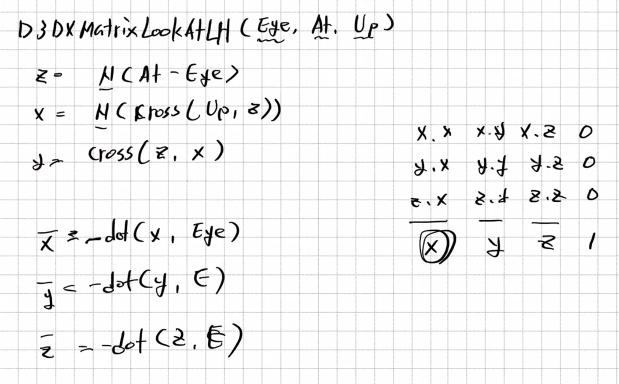 D3DXMatrixLookAtLH (Eye, At. Up)
z = N(At - Eye)
x = N(Cross(Up, z))
y = cross(z, x)
x̅ = -dot(x, Eye)
y̅ = -dot(y, E)
z̅ = -dot(z, E)
x.x x.y x.z 0
y.x y.y y.z 0
z.x z.y z.z 0
x̅ y̅ z̅ 1